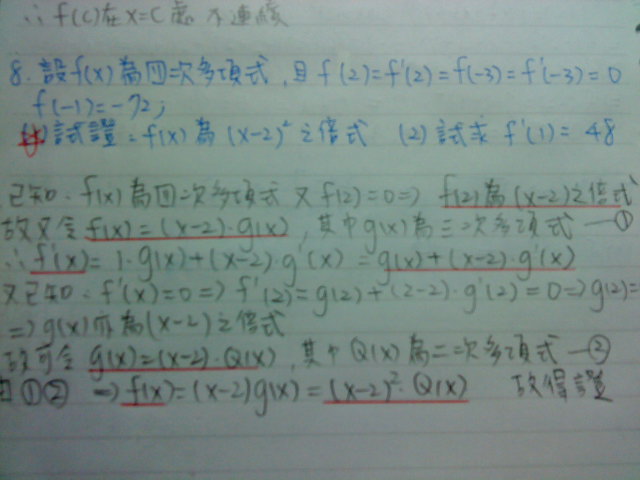 ∴ f(c)在x=c處不連續
8. 設f(x)為四次多項式，且f(2)=f'(2)=f(-3)=f'(-3)=0
f(-1)=-72;
(1)試證：f(x)為(x-2)²之倍式 (2)試求f'(1)= 48
已知：f(x)為四次多項式 又f(2)=0=> f(2)為(x-2)之倍式
故又令f(x)=(x-2)·g(x)，其中g(x)為三次多項式—①
∴ f'(x)=1·g(x)+(x-2)·g'(x)=g(x)+(x-2)·g'(x)
又已知：f'(x)=0=>f'(2)=g(2)+(2-2)·g'(2)=0=>g(2)=
=>g(x)亦為(x-2)之倍式
故可令 g(x)=(x-2)·Q(x)，其中Q(x)為二次多項式—②
由①② => f(x)=(x-2)g(x)=(x-2)²·Q(x) 故得證